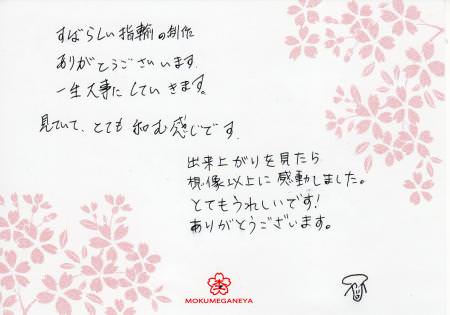 すばらしい指輪の制作
ありがとうございます。
一生大事にしていきます。
見ていて、とても和む感じです。
出来上がりを見たら
想像以上に感動しました。
とてもうれしいです!
ありがとうございます。
MOKUMEGANEYA